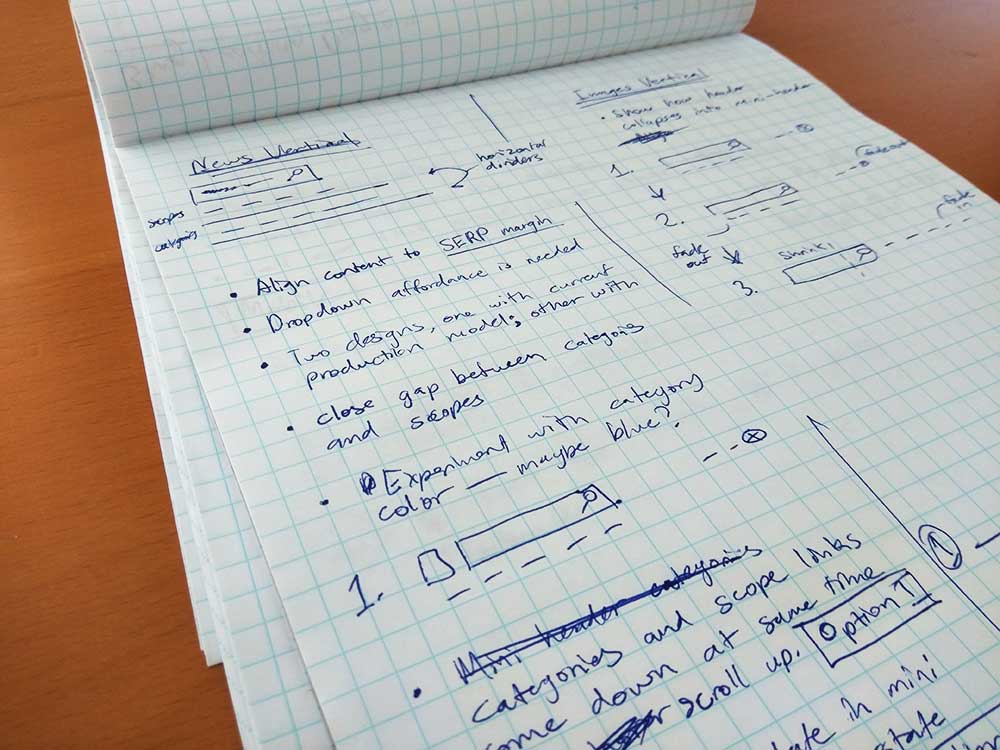 News Vertical
horizontal
dividers
scopes
categoris
• Align content to SERP margin
• Dropdown affordance is needed
• Two designs, one with current
production model; other with
• close gap between categoris
and scopes
• Experiment with category
color — maybe blue?
1.
Mini header categoris
• categories and scope links
come down at same time
scroll up. Option 1
state in mini
state
Images Vertical
• Show how header
collapses into mini-header
1.
2.
fade out
fade
out
3.
shrink!
fade
in
1